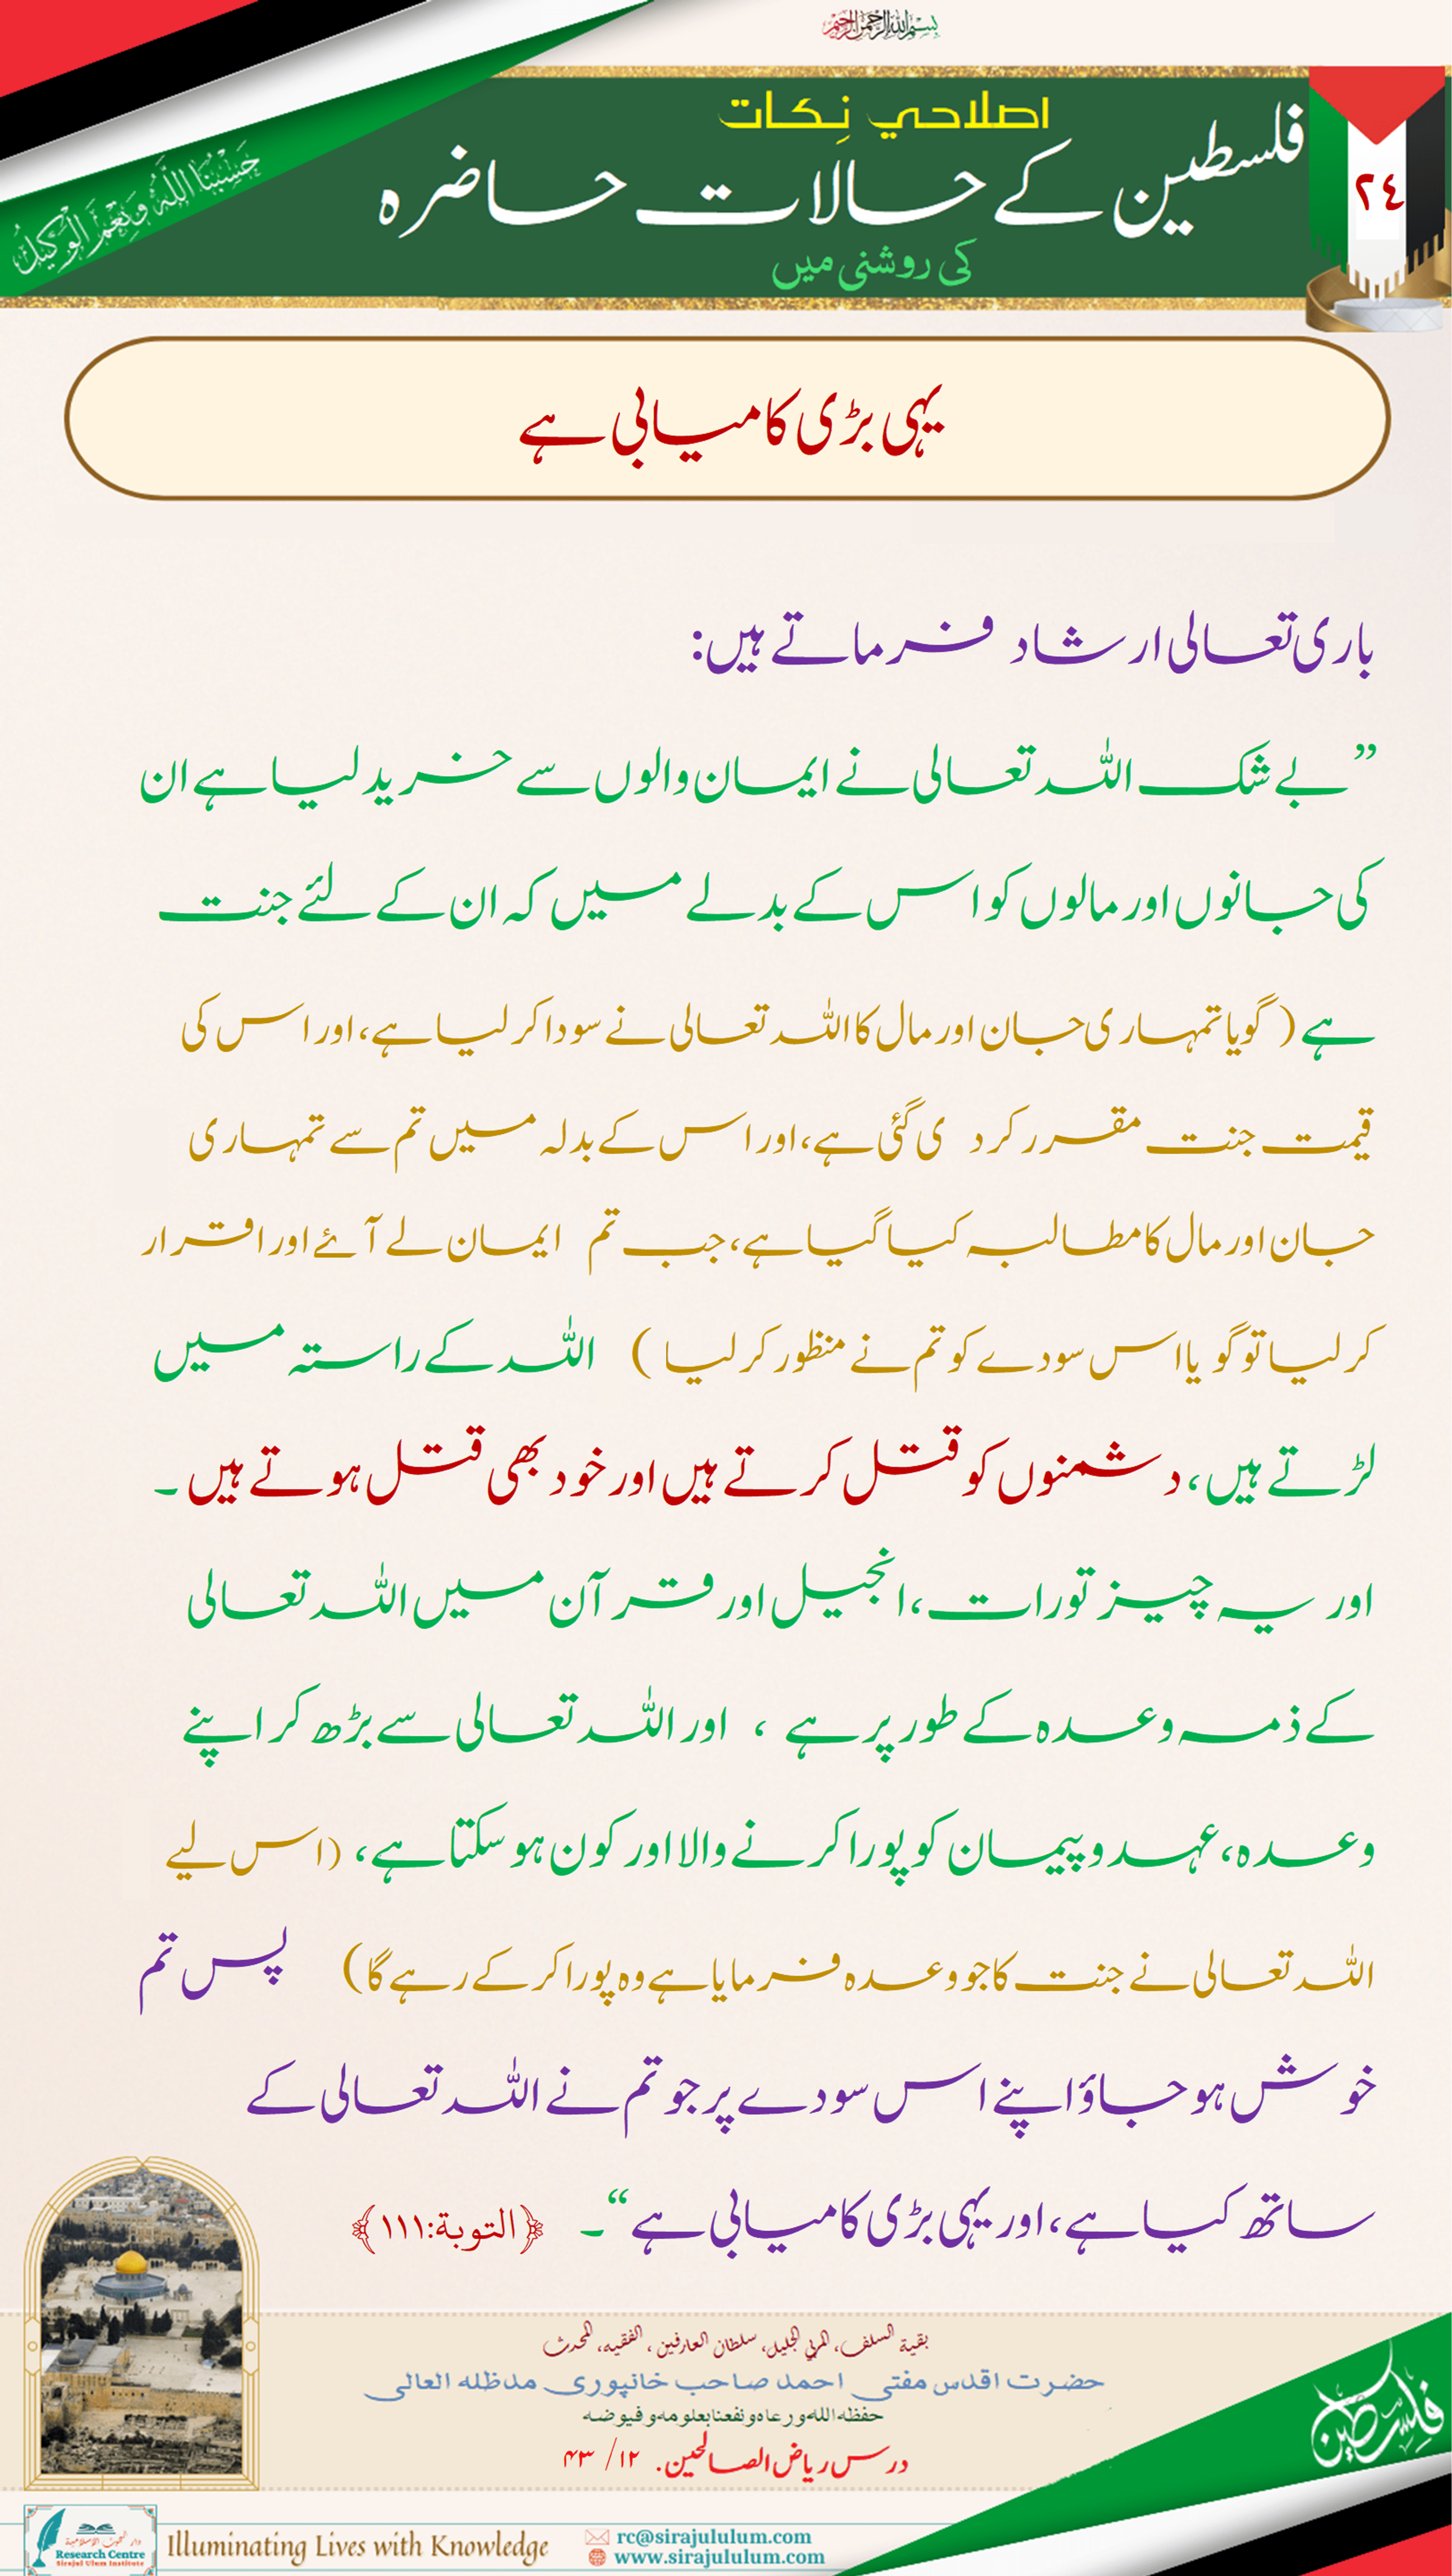 بسم الله الرحمن الرحيم
اصلاحي نِكات
فلسطین کے حالات حاضرہ
کی روشنی میں
٢٤
حَسْبُنَا اللَّهُ وَنِعْمَ الْوَكِيلُ
یہی بڑی کامیابی ہے
باری تعالی ارشاد فرماتے ہیں:
”بے شک اللہ تعالی نے ایمان والوں سے خرید لیا ہے ان
کی جانوں اور مالوں کو اس کے بدلے میں کہ ان کے لئے جنت
ہے (گویا تمہاری جان اور مال کا اللہ تعالی نے سودا کر لیا ہے، اور اس کی
قیمت جنت مقرر کر دی گئی ہے، اور اس کے بدلہ میں تم سے تمہاری
جان اور مال کا مطالبہ کیا گیا ہے، جب تم ایمان لے آئے اور اقرار
کر لیا تو گویا اس سودے کو تم نے منظور کر لیا) اللہ کے راستہ میں
لڑتے ہیں، دشمنوں کو قتل کرتے ہیں اور خود بھی قتل ہوتے ہیں۔
اور یہ چیز تورات، انجیل اور قرآن میں اللہ تعالی
کے ذمہ وعدہ کے طور پر ہے ، اور اللہ تعالی سے بڑھ کر اپنے
وعدہ، عہد و پیمان کو پورا کرنے والا اور کون ہو سکتا ہے، (اس لیے
اللہ تعالی نے جنت کا جو وعدہ فرمایا ہے وہ پورا کر کے رہے گا) پس تم
خوش ہو جاؤ اپنے اس سودے پر جو تم نے اللہ تعالی کے
ساتھ کیا ہے، اور یہی بڑی کامیابی ہے“۔ ﴿التوبة:١١١﴾
بقية السلف، المربي الجليل، سلطان العارفين، الفقيه، المحدث
حضرت اقدس مفتی احمد صاحب خانپوری مدظلہ العالی
حفظه الله ورعاه ونفعنا بعلومه وفيوضه
درس ریاض الصالحین. ۱۲/ ۴۳
فلسطين
دار البحوث الإسلامية
Research Centre
Sirajul Ulum Institute
Illuminating Lives with Knowledge
rc@sirajululum.com
www.sirajululum.com